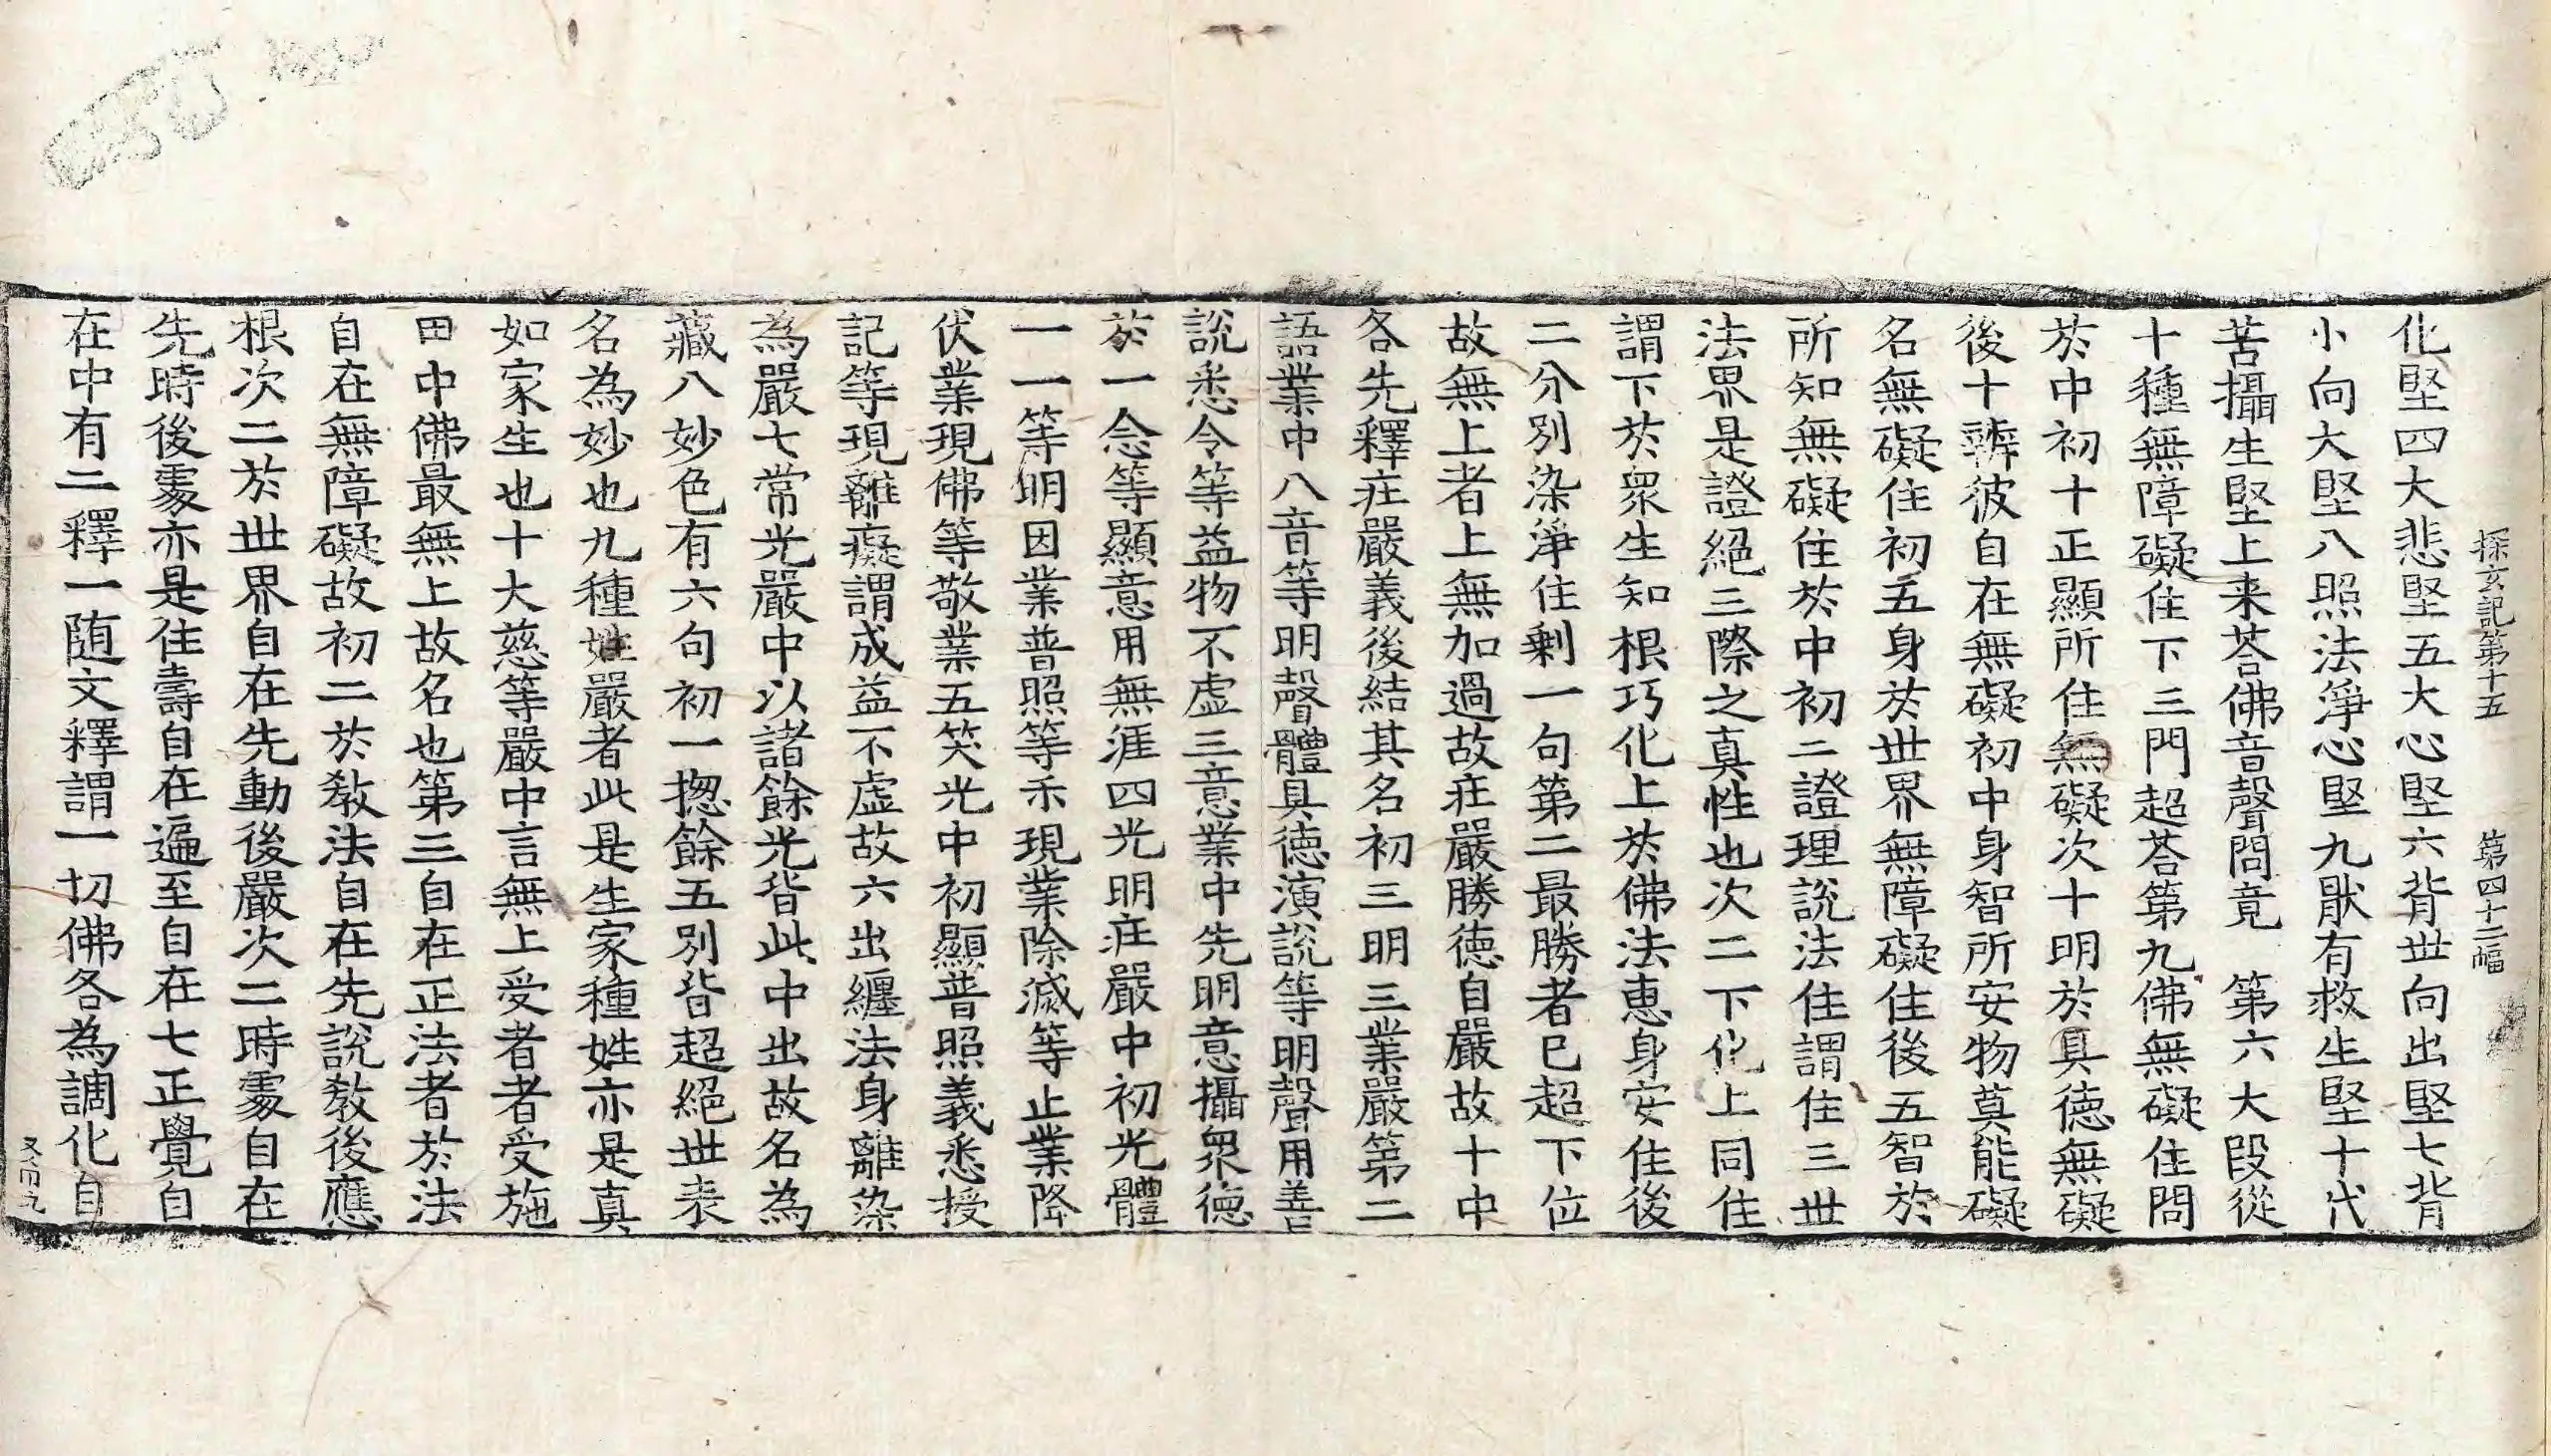 探玄記第十五 第四十二幅
化堅四大悲堅五大心堅六背世向出堅七背
小向大堅八照法淨心堅九猒有救生堅十代
苦攝生堅上来荅佛音聲問竟 第六大段從
十種無障礙住下三門超荅第九佛無礙住問
扵中初十正顯所住無礙次十明扵具徳無礙
後十辨彼自在無礙初中身智所安物莫能礙
名無礙住初五身扵世界無障礙住後五智扵
所知無礙住扵中初二證理説法住謂住三世
法界是證絕三際之真性也次二下化上同住
謂下扵衆生知根巧化上扵佛法恵身安住後
二分別染淨住剩一句第二最勝者已超下位
故無上者上無加過故庄嚴勝徳自嚴故十中
各先釋庄嚴義後結其名初三明三業嚴第二
語業中八音等明聲體具徳演説等明聲用善
説悉令等益物不虛三意業中先明意攝衆徳
扵一念等顯意用無涯四光明庄嚴中初光體
一一等明因業普照等示現業除滅等止業降
伏業現佛等敬業五笑光中初顯普照義悉授
記等現離癡謂成益不虛故六出纏法身離染
為嚴七常光嚴中以諸餘光皆此中出故名為
藏八妙色有六句初一揔餘五別皆超絕世表
名為妙也九種姓嚴者此是生家種姓亦是真
如家生也十大慈等嚴中言無上受者者受施
田中佛最無上故名也第三自在正法者扵法
自在無障礙故初二扵教法自在先説教後應
根次二扵世界自在先動後嚴次二時䖏自在
先時後䖏亦是住壽自在遍至自在七正覺自
在中有二釋一随文釋謂一切佛各為調化自